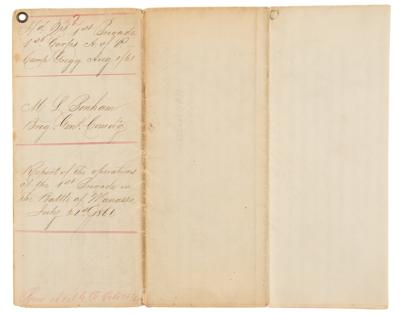 Hd Qrs 1st Brigade
1st Corps A of P
Camp Gregg Aug 1/61
M L Bonham
Brig. Genl. Comdg
Report of the operations
of the 1st Brigade in
the Battle of Manassas
July 21st 1861